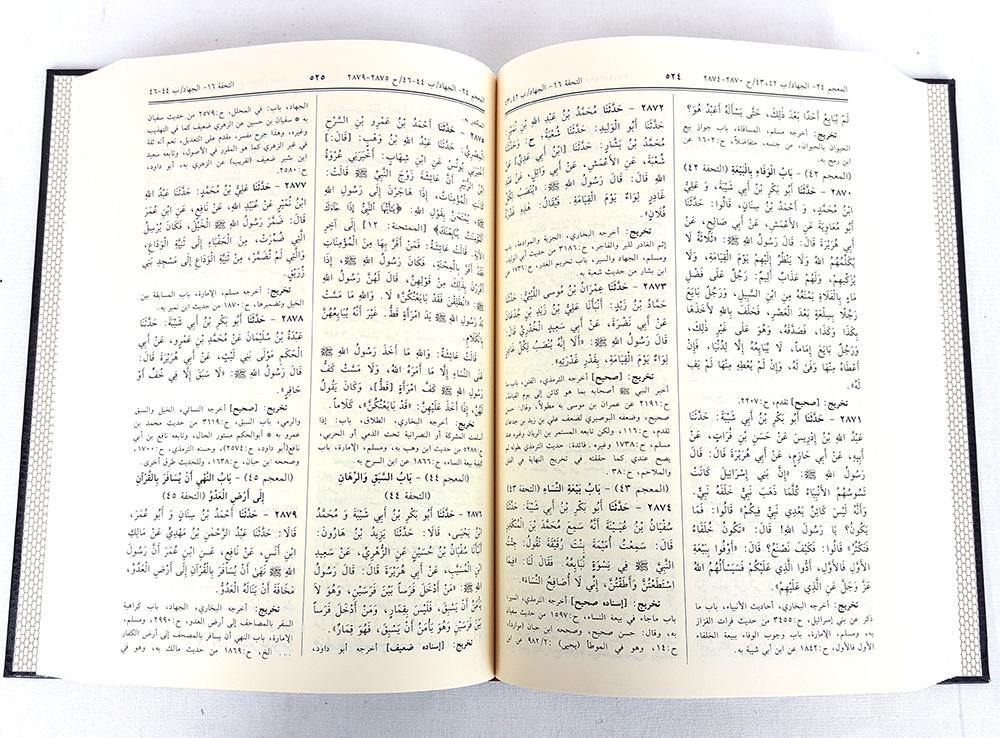 المعجم ٢٤- الجهاد/ب ٤٣،٤٢/ح ٢٨٧٠-٢٨٧٤
٥٢٤
التحفة ١٦- الجهاد/ب ٤٣،٤٢
لَمْ يُبَايِعْ أَحَدًا بَعْدَ ذَلِكَ، حَتَّى يَسْأَلَهُ أَعَبْدٌ هُوَ؟
تخريج: أخرجه مسلم، المساقاة، باب جواز بيع
الحيوان بالحيوان، من جنسه، متفاضلاً، ح:١٦٠٢ عن
ابن رمح به.
(المعجم ٤٢) - بَابُ الْوَفَاءِ بِالْبَيْعَةِ (التحفة ٤٢)
٢٨٧٠ - حَدَّثَنَا أَبُو بَكْرِ بْنُ أَبِي شَيْبَةَ، وَ عَلِيُّ
ابْنُ مُحَمَّدٍ، وَ أَحْمَدُ بْنُ سِنَانٍ، قَالُوا: حَدَّثَنَا
أَبُو مُعَاوِيَةَ عَنِ الأَعْمَشِ، عَنْ أَبِي صَالِحٍ، عَنْ
أَبِي هُرَيْرَةَ قَالَ: قَالَ رَسُولُ اللهِ ﷺ: «ثَلاَثَةٌ لاَ
يُكَلِّمُهُمُ اللهُ وَلاَ يَنْظُرُ إِلَيْهِمْ يَوْمَ الْقِيَامَةِ، وَلاَ
يُزَكِّيهِمْ، وَلَهُمْ عَذَابٌ أَلِيمٌ: رَجُلٌ عَلَى فَضْلِ
مَاءٍ بِالْفَلاَةِ يَمْنَعُهُ مِنِ ابْنِ السَّبِيلِ، وَرَجُلٌ بَايَعَ
رَجُلًا بِسِلْعَةٍ بَعْدَ الْعَصْرِ، فَحَلَفَ بِاللهِ لأَخَذَهَا
بِكَذَا وَكَذَا، فَصَدَّقَهُ، وَهُوَ عَلَى غَيْرِ ذَلِكَ،
وَرَجُلٌ بَايَعَ إِمَاماً، لاَ يُبَايِعُهُ إِلاَّ لِدُنْيَا، فَإِنْ
أَعْطَاهُ مِنْهَا وَفَى لَهُ، وَإِنْ لَمْ يُعْطِهِ مِنْهَا لَمْ يَفِ
لَهُ».
تخريج: [صحيح] تقدم، ح:٢٢٠٧.
٢٨٧١ - حَدَّثَنَا أَبُو بَكْرِ بْنُ أَبِي شَيْبَةَ: حَدَّثَنَا
عَبْدُ اللهِ بْنُ إِدْرِيسَ عَنْ حَسَنِ بْنِ فُرَاتٍ، عَنْ
أَبِيهِ، عَنْ أَبِي حَازِمٍ، عَنْ أَبِي هُرَيْرَةَ قَالَ: قَالَ
رَسُولُ اللهِ ﷺ: «إِنَّ بَنِي إِسْرَائِيلَ كَانَتْ
تَسُوسُهُمُ الأَنْبِيَاءُ كُلَّمَا ذَهَبَ نَبِيٌّ خَلَفَهُ نَبِيٌّ.
وَأَنَّهُ لَيْسَ كَائِنٌ بَعْدِي نَبِيٌّ فِيكُمْ» قَالُوا: فَمَا
يَكُونُ؟ يَا رَسُولَ اللهِ! قَالَ: «تَكُونُ خُلَفَاءُ
فَتَكْثُرُ» قَالُوا: فَكَيْفَ نَصْنَعُ؟ قَالَ: «أَوْفُوا بِبَيْعَةِ
الأَوَّلِ فَالأَوَّلِ، أَدُّوا الَّذِي عَلَيْكُمْ فَسَيَسْأَلُهُمُ اللهُ
عَزَّ وَجَلَّ عَنِ الَّذِي عَلَيْهِمْ».
تخريج: أخرجه البخاري، أحاديث الأنبياء، باب ما
ذكر عن بني إسرائيل، ح:٣٤٥٥ من حديث فرات القزاز
به، ومسلم، الإمارة، باب وجوب الوفاء ببيعة الخلفاء
الأول فالأول، ح:١٨٤٢ عن ابن أبي شيبة به.
٢٨٧٢ - حَدَّثَنَا مُحَمَّدُ بْنُ عَبْدِ اللهِ بْنِ نُمَيْرٍ:
حَدَّثَنَا أَبُو الْوَلِيدِ: حَدَّثَنَا شُعْبَةُ، ح: وَحَدَّثَنَا
مُحَمَّدُ بْنُ بَشَّارٍ: حَدَّثَنَا [ابْنُ أَبِي عَدِيٍّ] عَنْ
شُعْبَةَ، عَنِ الأَعْمَشِ، عَنْ أَبِي وَائِلٍ، عَنْ عَبْدِ
اللهِ قَالَ: قَالَ رَسُولُ اللهِ ﷺ: «يُنْصَبُ لِكُلِّ
غَادِرٍ لِوَاءٌ يَوْمَ الْقِيَامَةِ. فَيُقَالُ: هَذِهِ غَدْرَةُ
فُلاَنٍ».
تخريج: أخرجه البخاري، الجزية والموادعة، باب
إثم الغادر للبر والفاجر، ح:٣١٨٦ عن أبي الوليد به،
ومسلم، الجهاد والسير، باب تحريم الغدر، ح: عن
ابن بشار من حديث شعبة به.
٢٨٧٣ - حَدَّثَنَا عِمْرَانُ بْنُ مُوسَى اللَّيْثِيُّ: حَدَّثَنَا
حَمَّادُ بْنُ زَيْدٍ: أَنْبَأَنَا عَلِيُّ بْنُ زَيْدِ بْنِ جُدْعَانَ
عَنْ أَبِي نَضْرَةَ، عَنْ أَبِي سَعِيدٍ الْخُدْرِيِّ قَالَ:
قَالَ رَسُولُ اللهِ ﷺ: «أَلاَ إِنَّهُ يُنْصَبُ لِكُلِّ غَادِرٍ
لِوَاءٌ يَوْمَ الْقِيَامَةِ، بِقَدْرِ غَدْرَتِهِ».
تخريج: [صحيح] أخرجه الترمذي، الفتن، باب ما
أخبر النبي ﷺ أصحابه بما هو كائن إلى يوم القيامة،
ح:٢١٩١ عن عمران بن موسى به مطولاً، وقال: حسن
صحيح، وضعفه البوصيري لضعف علي بن زيد،
تقدم، ح:١١٦، ولكن تابعه المستمر بن الريان وغيره عند
مسلم، ح:١٧٣٨، وغيره. فائدة: حديث الترمذي طوله لم
يصح عندي كما حققته في تخريج النهاية في الفتن
والملاحم، ح:٣٨.
(المعجم ٤٣) - بَابُ بَيْعَةِ النِّسَاءِ (التحفة ٤٣)
٢٨٧٤ - حَدَّثَنَا أَبُو بَكْرِ بْنُ أَبِي شَيْبَةَ: حَدَّثَنَا
سُفْيَانُ بْنُ عُيَيْنَةَ أَنَّهُ سَمِعَ مُحَمَّدَ بْنَ الْمُنْكَدِرِ
قَالَ: سَمِعْتُ أُمَيْمَةَ بِنْتَ رُقَيْقَةَ تَقُولُ: جِئْتُ
النَّبِيَّ ﷺ فِي نِسْوَةٍ نُبَايِعُهُ. فَقَالَ لَنَا: «فِيمَا
اسْتَطَعْتُنَّ وَأَطَقْتُنَّ، إِنِّي لاَ أُصَافِحُ النِّسَاءَ».
تخريج: [إسناده صحيح] أخرجه الترمذي، السير،
باب ماجاء في بيعة النساء، ح:١٥٩٧ من حديث سفيان
به، وقال: حسن صحيح، وصححه ابن حبان (موارد)،
ح:١٤، وهو في الموطأ (يحيى) ٩٨٢/٢ عن ابن
المعجم ٢٤- الجهاد/ب ٤٤-٤٦/ح ٢٨٧٥-٢٨٧٩
٥٢٥
التحفة ١٦- الجهاد/ب ٤٤-٤٦
المنكدر به.
٢٨٧٥ - حَدَّثَنَا أَحْمَدُ بْنُ عَمْرِو بْنِ السَّرْحِ
الْمِصْرِيُّ: حَدَّثَنَا عَبْدُ اللهِ بْنُ وَهْبٍ: [قَالَ:]
أَخْبَرَنِي يُونُسُ عَنِ ابْنِ شِهَابٍ: أَخْبَرَنِي عُرْوَةُ
بْنُ الزُّبَيْرِ أَنَّ عَائِشَةَ زَوْجَ النَّبِيِّ ﷺ قَالَتْ:
كَانَتِ الْمُؤْمِنَاتُ، إِذَا هَاجَرْنَ إِلَى رَسُولِ اللهِ
ﷺ، يُمْتَحَنَّ بِقَوْلِ اللهِ: ﴿يَٰٓأَيُّهَا ٱلنَّبِىُّ إِذَا جَآءَكَ
ٱلْمُؤْمِنَٰتُ يُبَايِعْنَكَ﴾ [الممتحنة: ١٢] إِلَى آخِرِ
الآيَةِ. قَالَتْ عَائِشَةُ: فَمَنْ أَقَرَّ بِهَا مِنَ الْمُؤْمِنَاتِ
فَقَدْ أَقَرَّ بِالْمِحْنَةِ، فَكَانَ رَسُولُ اللهِ ﷺ، إِذَا
أَقْرَرْنَ بِذَلِكَ مِنْ قَوْلِهِنَّ، قَالَ لَهُنَّ رَسُولُ اللهِ
ﷺ: «انْطَلِقْنَ فَقَدْ بَايَعْتُكُنَّ» لاَ. وَاللهِ مَا مَسَّتْ
يَدُ رَسُولِ اللهِ ﷺ يَدَ امْرَأَةٍ قَطُّ. غَيْرَ أَنَّهُ يُبَايِعُهُنَّ
بِالْكَلاَمِ.
قَالَتْ عَائِشَةُ: وَاللهِ مَا أَخَذَ رَسُولُ اللهِ ﷺ
عَلَى النِّسَاءِ إِلاَّ مَا أَمَرَهُ اللهُ، وَلاَ مَسَّتْ كَفُّ
رَسُولِ اللهِ ﷺ كَفَّ امْرَأَةٍ [قَطُّ]، وَكَانَ يَقُولُ
لَهُنَّ، إِذَا أَخَذَ عَلَيْهِنَّ: «قَدْ بَايَعْتُكُنَّ»، كَلاَماً.
تخريج: أخرجه البخاري، الطلاق، باب: إذا
أسلمت المشركة أو النصرانية تحت الذمي أو الحربي،
ح:٥٢٨٨ من حديث ابن وهب به، ومسلم، الإمارة، باب
كيفية بيعة النساء، ح:١٨٦٦ عن ابن السرح به.
(المعجم ٤٤) - بَابُ السَّبَقِ وَالرِّهَانِ
(التحفة ٤٤)
٢٨٧٦ - حَدَّثَنَا أَبُو بَكْرِ بْنُ أَبِي شَيْبَةَ وَ مُحَمَّدُ
ابْنُ يَحْيَى، قَالاَ: حَدَّثَنَا يَزِيدُ بْنُ هَارُونَ:
أَنْبَأَنَا سُفْيَانُ بْنُ حُسَيْنٍ عَنِ الزُّهْرِيِّ، عَنْ سَعِيدِ
بْنِ الْمُسَيَّبِ، عَنْ أَبِي هُرَيْرَةَ قَالَ: قَالَ رَسُولُ
اللهِ ﷺ: «مَنْ أَدْخَلَ فَرَساً بَيْنَ فَرَسَيْنِ، وَهُوَ لاَ
يَأْمَنُ أَنْ يَسْبِقَ، فَلَيْسَ بِقِمَارٍ، وَمَنْ أَدْخَلَ فَرَساً
بَيْنَ فَرَسَيْنِ وَهُوَ يَأْمَنُ أَنْ يَسْبِقَ، فَهُوَ قِمَارٌ».
تخريج: [إسناده ضعيف] أخرجه أبو داود،
الجهاد، باب: في المحلل، ح:٢٥٧٩ من حديث سفيان
به * سفيان بن حسين عن الزهري ضعيف كما في التهذيب
وغيره، وهذا جرح مفسر، مقدم على التعديل، نعم أنه ثقة
في غير الزهري كما هو المقرر في الأصول، وتابعه سعيد
ابن بشير ضعيف (تقريب) عن الزهري به، أبو داود،
ح:٢٥٨٠.
٢٨٧٧ - حَدَّثَنَا عَلِيُّ بْنُ مُحَمَّدٍ: حَدَّثَنَا عَبْدُ اللهِ
ابْنُ نُمَيْرٍ عَنْ عُبَيْدِ اللهِ، عَنْ نَافِعٍ، عَنِ ابْنِ عُمَرَ
قَالَ: ضَمَّرَ رَسُولُ اللهِ ﷺ الْخَيْلَ، فَكَانَ يُرْسِلُ
الَّتِي ضُمِّرَتْ، مِنَ الْحَفْيَاءِ إِلَى ثَنِيَّةِ الْوَدَاعِ،
وَالَّتِي لَمْ تُضَمَّرْ، مِنْ ثَنِيَّةِ الْوَدَاعِ إِلَى مَسْجِدِ بَنِي
زُرَيْقٍ.
تخريج: أخرجه مسلم، الإمارة، باب المسابقة بين
الخيل وتضميرها، ح:١٨٧٠ من حديث ابن نمير به.
٢٨٧٨ - حَدَّثَنَا أَبُو بَكْرِ بْنُ أَبِي شَيْبَةَ: حَدَّثَنَا
عَبْدَةُ بْنُ سُلَيْمَانَ عَنْ مُحَمَّدِ بْنِ عَمْرٍو، عَنْ أَبِي
الْحَكَمِ مَوْلَى بَنِي لَيْثٍ، عَنْ أَبِي هُرَيْرَةَ قَالَ:
قَالَ رَسُولُ اللهِ ﷺ: «لاَ سَبَقَ إِلاَّ فِي خُفٍّ أَوْ
حَافِرٍ».
تخريج: [صحيح] أخرجه النسائي، الخيل والسبق
والرمي، باب السبق، ح:٣١١٩ من حديث محمد بن
عمرو به * أبوالحكم مستور الحال، وتابعه نافع بن أبي
نافع(أبو داود، ح:٢٥٧٤)، وحسنه الترمذي، ح:١٧٠٠،
وصححه ابن حبان، ح:١٦٣٨، وللحديث طرق أخرى.
(المعجم ٤٥) - بَابُ النَّهْيِ أَنْ يُسَافَرَ بِالْقُرْآنِ
إِلَى أَرْضِ الْعَدُوِّ (التحفة ٤٥)
٢٨٧٩ - حَدَّثَنَا أَحْمَدُ بْنُ سِنَانٍ وَ أَبُو عُمَرَ،
قَالاَ: حَدَّثَنَا عَبْدُ الرَّحْمَنِ بْنُ مَهْدِيٍّ عَنْ مَالِكِ
ابْنِ أَنَسٍ، عَنْ نَافِعٍ، عَنِ ابْنِ عُمَرَ أَنَّ رَسُولَ
اللهِ ﷺ نَهَى أَنْ يُسَافَرَ بِالْقُرْآنِ إِلَى أَرْضِ الْعَدُوِّ،
مَخَافَةَ أَنْ يَنَالَهُ الْعَدُوُّ.
تخريج: أخرجه البخاري، الجهاد، باب كراهية
السفر بالمصاحف إلى أرض العدو، ح:٢٩٩٠، ومسلم،
الإمارة، باب النهي أن يسافر بالمصحف إلى أرض الكفار
... الخ، ح:١٨٦٩ من حديث مالك به، وهو في